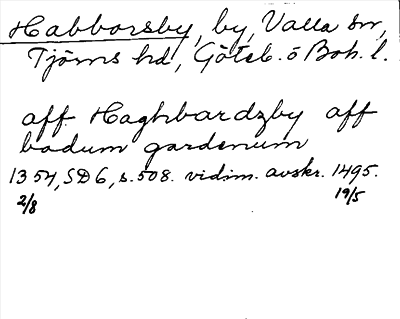 Habborsby, by, Valla sn,
Tjörns hd, Göteb. o Boh. l.
aff Haghbardzby aff
badum gardenum
1354, SD 6, s. 508. vidim. avskr. 1495.
2/8 19/5